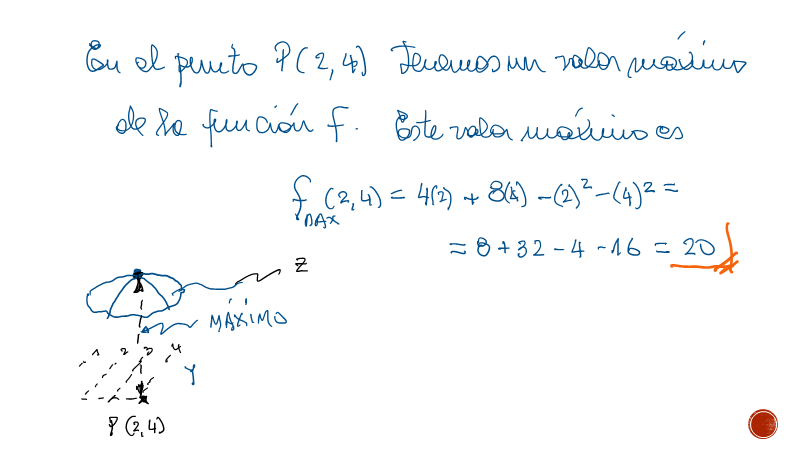 En el punto P(2,4) Tenemos un valor máximo
de la función f. Este valor máximo es
f MAX (2,4) = 4(2) + 8(4) - (2)² - (4)² =
= 8 + 32 - 4 - 16 = 20
Z
MÁXIMO
1 2 3 4
Y
P(2,4)